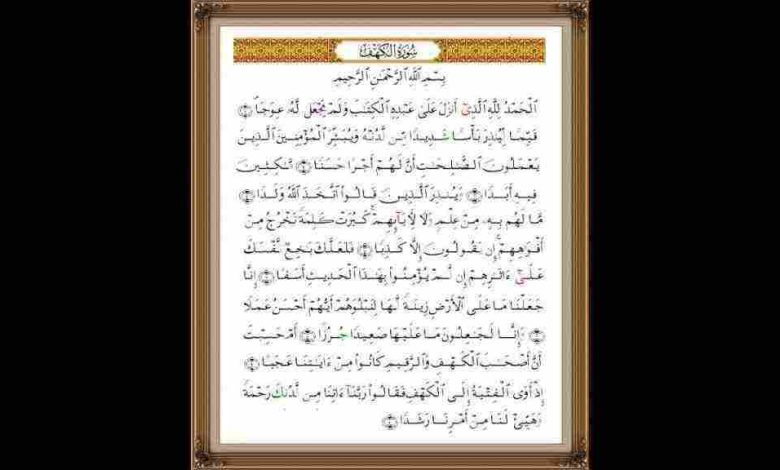 سُورَةُ الْكَهْفِ
بِسْمِ ٱللَّهِ ٱلرَّحْمَٰنِ ٱلرَّحِيمِ
ٱلْحَمْدُ لِلَّهِ ٱلَّذِىٓ أَنزَلَ عَلَىٰ عَبْدِهِ ٱلْكِتَٰبَ وَلَمْ يَجْعَل لَّهُۥ عِوَجَا ۜ ۝١
قَيِّمًا لِّيُنذِرَ بَأْسًا شَدِيدًا مِّن لَّدُنْهُ وَيُبَشِّرَ ٱلْمُؤْمِنِينَ ٱلَّذِينَ
يَعْمَلُونَ ٱلصَّٰلِحَٰتِ أَنَّ لَهُمْ أَجْرًا حَسَنًا ۝٢ مَّٰكِثِينَ
فِيهِ أَبَدًا ۝٣ وَيُنذِرَ ٱلَّذِينَ قَالُوا۟ ٱتَّخَذَ ٱللَّهُ وَلَدًا ۝٤
مَّا لَهُم بِهِۦ مِنْ عِلْمٍ وَلَا لِـَٔابَآئِهِمْ ۚ كَبُرَتْ كَلِمَةً تَخْرُجُ مِنْ
أَفْوَٰهِهِمْ ۚ إِن يَقُولُونَ إِلَّا كَذِبًا ۝٥ فَلَعَلَّكَ بَٰخِعٌ نَّفْسَكَ
عَلَىٰٓ ءَاثَٰرِهِمْ إِن لَّمْ يُؤْمِنُوا۟ بِهَٰذَا ٱلْحَدِيثِ أَسَفًا ۝٦ إِنَّا
جَعَلْنَا مَا عَلَى ٱلْأَرْضِ زِينَةً لَّهَا لِنَبْلُوَهُمْ أَيُّهُمْ أَحْسَنُ عَمَلًا
۝٧ وَإِنَّا لَجَٰعِلُونَ مَا عَلَيْهَا صَعِيدًا جُرُزًا ۝٨ أَمْ حَسِبْتَ
أَنَّ أَصْحَٰبَ ٱلْكَهْفِ وَٱلرَّقِيمِ كَانُوا۟ مِنْ ءَايَٰتِنَا عَجَبًا ۝٩
إِذْ أَوَى ٱلْفِتْيَةُ إِلَى ٱلْكَهْفِ فَقَالُوا۟ رَبَّنَآ ءَاتِنَا مِن لَّدُنكَ رَحْمَةً
وَهَيِّئْ لَنَا مِنْ أَمْرِنَا رَشَدًا ۝١٠